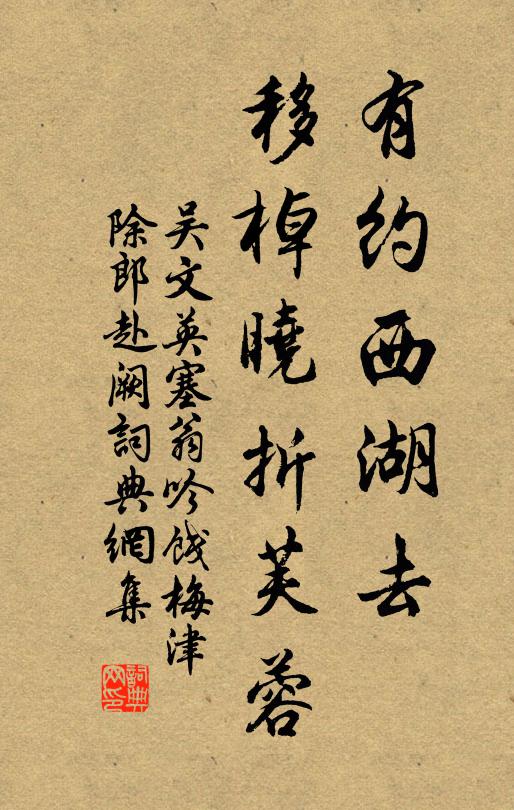 有约西湖去
移棹曉折芙蓉
吴文英塞翁吟餞梅津
除郎赴阙詞典網集
詞典网印